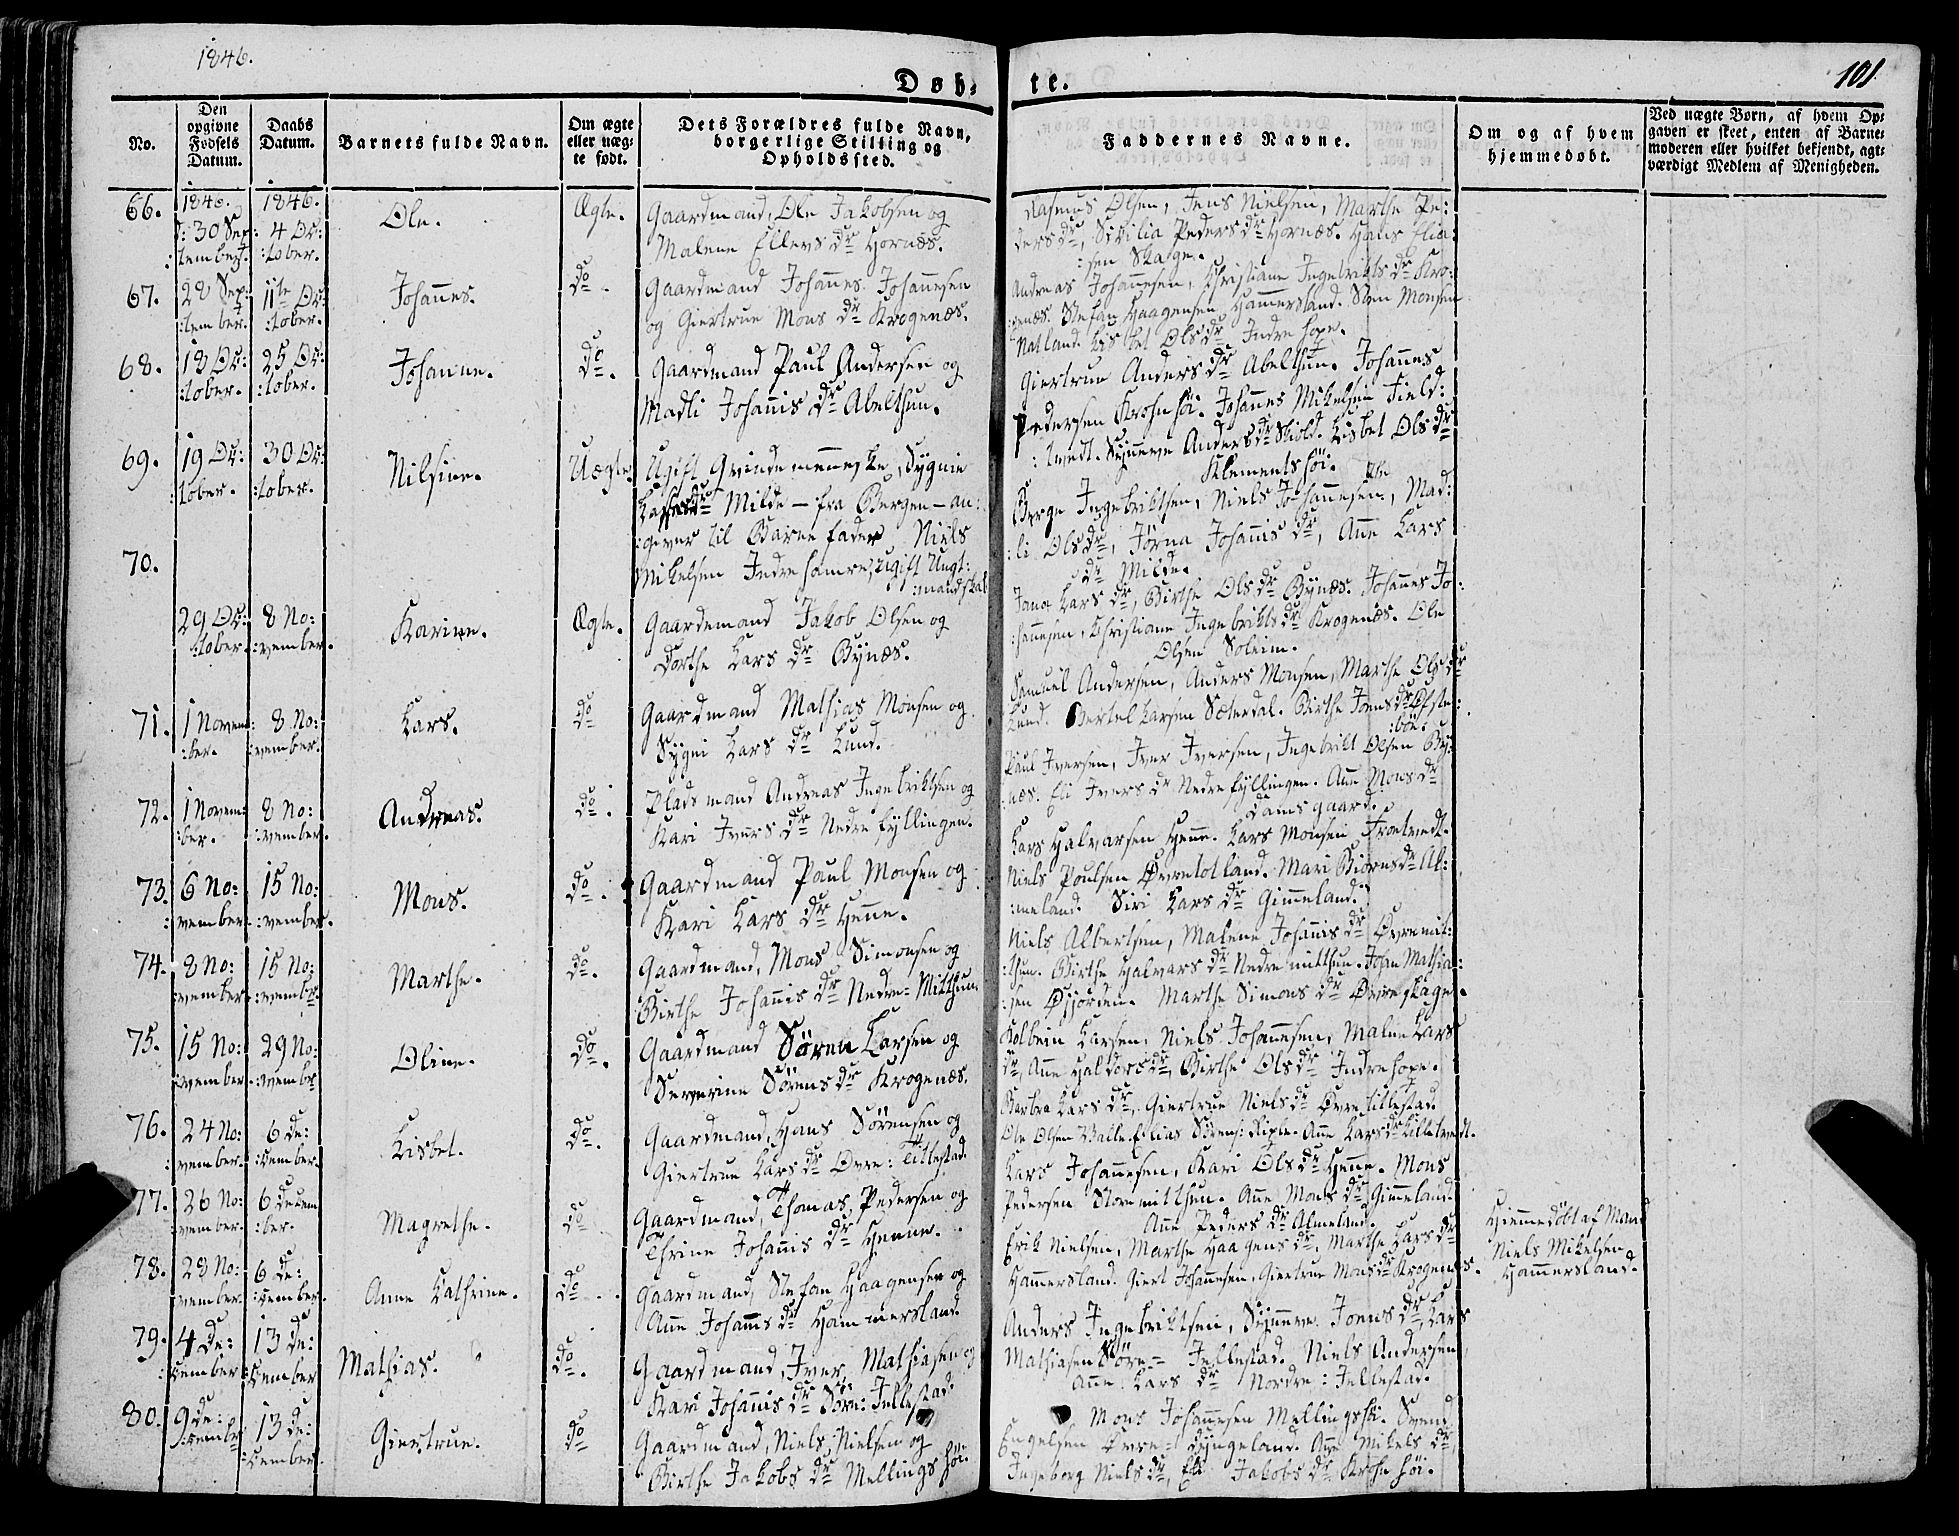 1846.
Døb-
te.
101
No.
Den opgivne Fødsels Datum.
Daabs Datum.
Barnets fulde Navn.
Om ægte eller uægte født.
Dets Forældres fulde Navn, borgerlige Stilling og Opholdssted.
Faddernes Navne.
Om og af hvem hjemmedøbt.
Ved uægte Børn, af hvem Opgaven er skeet, enten af Barnemoderen eller hvilket bekjendt, agtværdigt Medlem af Menigheden.
66.
1846. 30 Sep:
:tember.
1846. 4 Oc:
:tober.
Ole.
Ægte.
Gaardmand, Ole Jakobsen og
Malene Ellevs dr Hornæs.
Rasmus Olsen, Jens Nielsen, Marthe Pe:
ders dr, Sicilia Peders dr Hornæs. Hans Elia:
:sen Skage.
67.
28 Sep:
:tember.
11te Oc:
:tober.
Johannes.
Do
Gaardmand Johannes Johannesen
og Giertrue Mons dr Krogenæs.
Andreas Johannesen, Christiane Ingebrikts dr Kro:
:genæs. Stefan Haagensen Hammersland. Sten Monsen
Natland. Lisbet Ols dr Indre hope.
68.
18 Oc:
:tober.
25 Oc:
:tober.
Johanne.
Do.
Gaardmand Paul Andersen og
Madli Johannis dr Abelthun.
Giertrue Anders dr Abelthun. Johannes
Pedersen Krohnhøi. Johannes Mikelsen Field:
:tvedt. Synneve Anders dr Skiold. Lisbet Ols dr
Klementshøi.
69.
19 Oc:
:tober.
30 Oc:
:tober.
Nilsine.
Uægte.
Ugift Qvindemenneske, Sygnie
Lars dr Milde – fra Bergen – an:
:giver til Barnefader Niels
Mikelsen Indre hamre, ugift Ungt:
:mandskal
Børge Ingebriktsen, Niels Johannesen, Mad:
:li Ols dr, Jørna Johannis dr, Anne Lars
dr Milde.
70.
29 Oc:
:tober.
8 No:
:vember.
Karine.
Ægte.
Gaardemand Jakob Olsen og
Dorthe Lars dr Bynæs.
Lars dr, Birthe Ols dr Bynæs. Johannes Jo:
:hannesen, Christiane Ingebrikts dr Krogenæs. Ole
Olsen Soleim.
71.
1 Novem:
:ber.
8 No:
:vember.
Lars.
Do
Gaardmand Mathias Monsen og
Sygni Lars dr Lund.
Samuel Andersen, Anders Monsen, Marthe Ols dr
Lund. Bertel Larsen Sæterdal. Birthe Joens dr Øfste:
:bøe.
72.
1 Novem:
:ber.
8 No:
:vember.
Andreas.
Do.
Pladsmand Andreas Ingebriktsen og
Kari Ivers dr Nedre fyllingen.
Paul Iversen, Iver Iversen, Ingebrikt Olsen By:
:næs. Eli Ivers dr Nedre fyllingen. Anne Mons dr
Damsgaard.
73.
6 No:
vember.
15 No:
:vember.
Mons.
Do.
Gaardmand Paul Monsen og
Kari Lars dr Henne.
Lars Halvarsen Henne. Lars Monsen Frotvedt.
Niels Poulsen Øvretotland. Mari Biørns dr Al:
:meland. Siri Lars dr Gimmeland.
74.
8 No:
:vember.
15 No:
:vember.
Marthe.
Do.
Gaardmand, Mons Simonsen og
Birthe Johannis dr Nedre-Mitthun.
Niels Albertsen, Malene Johannis dr Øvremit:
:thun. Birthe Halvars dr Nedre mitthun. Johan Mathia:
:sen Øjjorden. Marthe Simons dr Øvreskage.
75.
15 No:
:vember.
29 No:
:vember
Oline.
Do.
Gaardmand Søren Larsen og
Severine Sørens dr Krogenæs.
Kolbein Larsen, Niels Johannesen, Malene Lars
dr, Anne Haldors dr, Birthe Ols dr Indre hope.
76.
24 No:
:vember.
6 De:
:cember.
Lisbet.
Do.
Gaardmand, Hans Sørensen og
Giertrue Lars dr Øvre: Titlestad.
Barbra Lars dr, Giertrue Niels dr Øvre titlestad.
Ole Olsen Balle. Elias Sørens: Riple. Anne Lars dr Lilletvedt.
77.
26 No:
vember.
6 Decem
:ber.
Magrethe.
Do
Gaardmand, Thomas Pedersen og
Thrine Johannis dr Henne.
Lars Johannesen, Kari Ols dr Henne. Mons
Pedersen Storemitthun. Anne Mons dr Gimmeland.
Anne Peders dr Almeland.
78.
28 No:
vember.
6 De:
:cember.
Anne Cathrine.
Do.
Gaardmand, Stefan Haagensen og
Anne Johannis dr Hammersland.
Erik Nielsen, Marthe Haagens dr, Marthe Lars dr
Hammersland. Giert Johannesen, Giertrue Mons dr Krogenæs.
Hiemmedøbt af Mand
Niels Mikelsen
Hammersland.
79.
4 De:
:cember
13 De:
:cember
Mathias.
Do.
Gaardmand, Iver Mathiasen og
Kari Johannis dr Søre: Jellestad.
Anders Ingebriktsen, Synneve Joens dr, Lars
Mathiasen Søre- Jellestad. Niels Andersen,
Anne Lars dr Nordre: Jellestad.
80.
9 De:
:cember
13 De:
:cember.
Giertrue.
Do
Gaardmand, Niels Nielsen og
Birthe Jakobs dr Mellingshøi.
Mons Johannesen Mellingshøi. Svend
Engelsen Øvre- Dyngeland. Anne Mikels dr,
Ingeborg Niels dr, Eli Jakobs dr Krohnhøi.